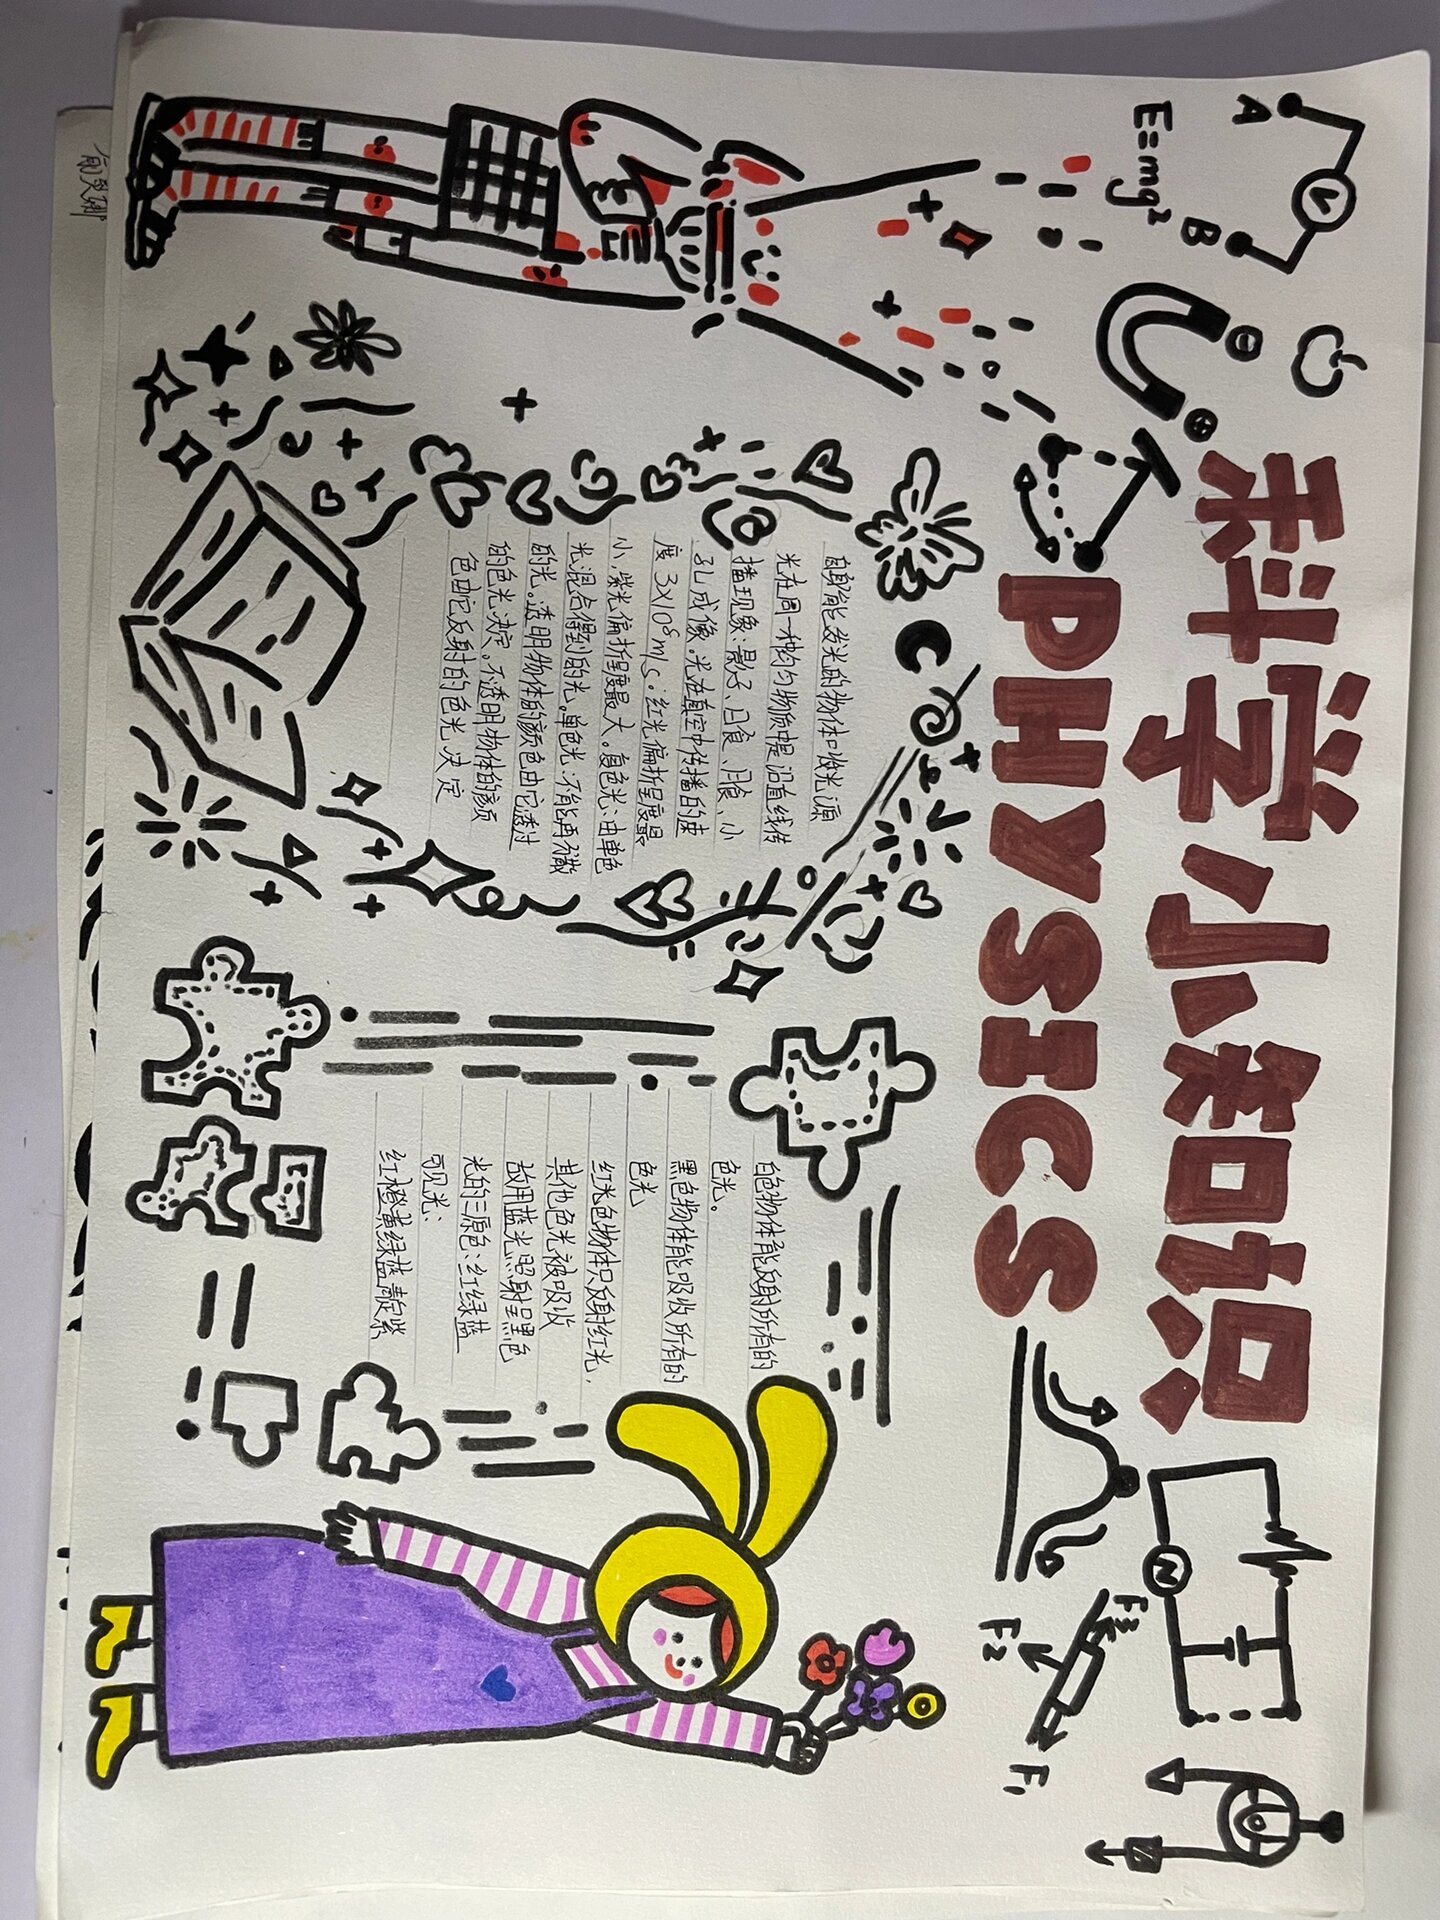 科学小知识
PHYSICS
A
V
B
E=mg²
N
F3
F2
F1
自身能发光的物体叫做光源
光在同一种均匀物质中是沿直线传
播现象:影子、日食、月食、小
孔成像。光在真空中传播的速
度3×10⁸m/s。红光偏折程度最
小,紫光偏折程度最大。复色光:由单色
光混合得到的光。单色光:不能再分散
的光。透明物体的颜色由它透过
的色光决定。不透明物体的颜
色由它反射的色光决定
白色物体能反射所有的
色光。
黑色物体能吸收所有的
色光
红光色物体只反射红光,
其他色光被吸收
故用蓝光照射呈黑色
光的三原色:红绿蓝
可见光:
红橙黄绿蓝靛紫